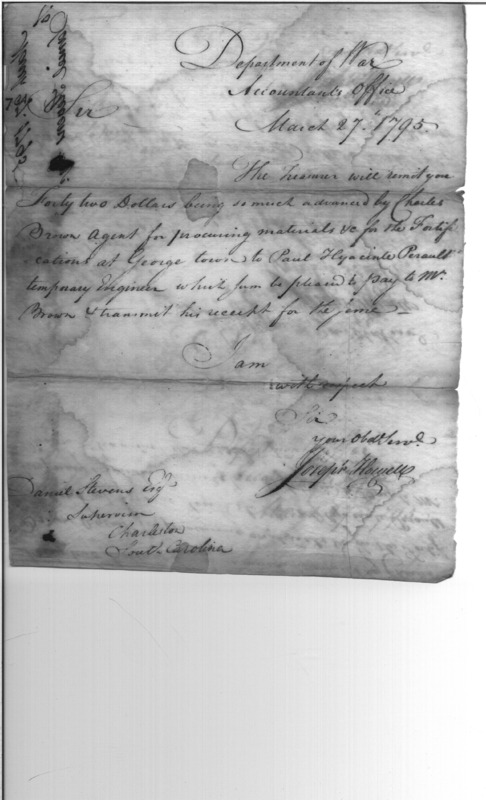 Department of War
Accountants Office
March 27th 1795.
Sir
The Treasurer will remit you
Forty two Dollars being so much advanced by Charles
Brown Agent for procuring materials &c for the Fortifi
cations at George town to Paul Hyacinte Perault
temporary Engineer which sum so pleased to pay to Mr.
Brown & transmit his receipt for the same
I am
with respect
Sir
your Obdt Servt.
Joseph Howell
Daniel Stevens Esqr
Supervisor
Charleston
South Carolina